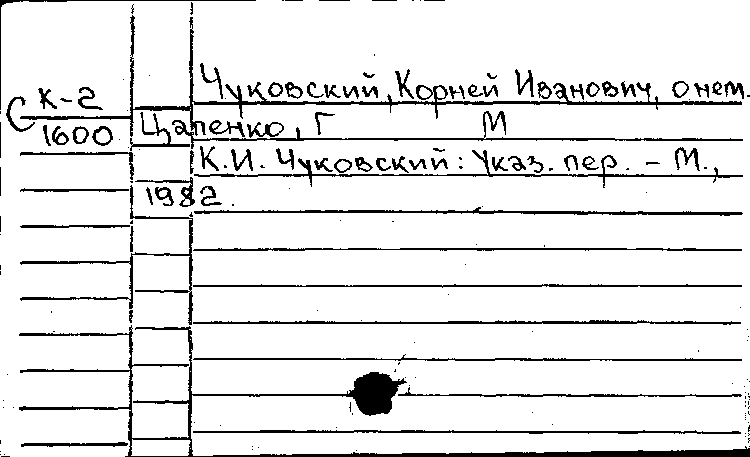 Чуковский, Корней Иванович, о нем.
С К-2
1600
Цапенко, Г М
К.И. Чуковский: Указ. пер. - М.,
1982.